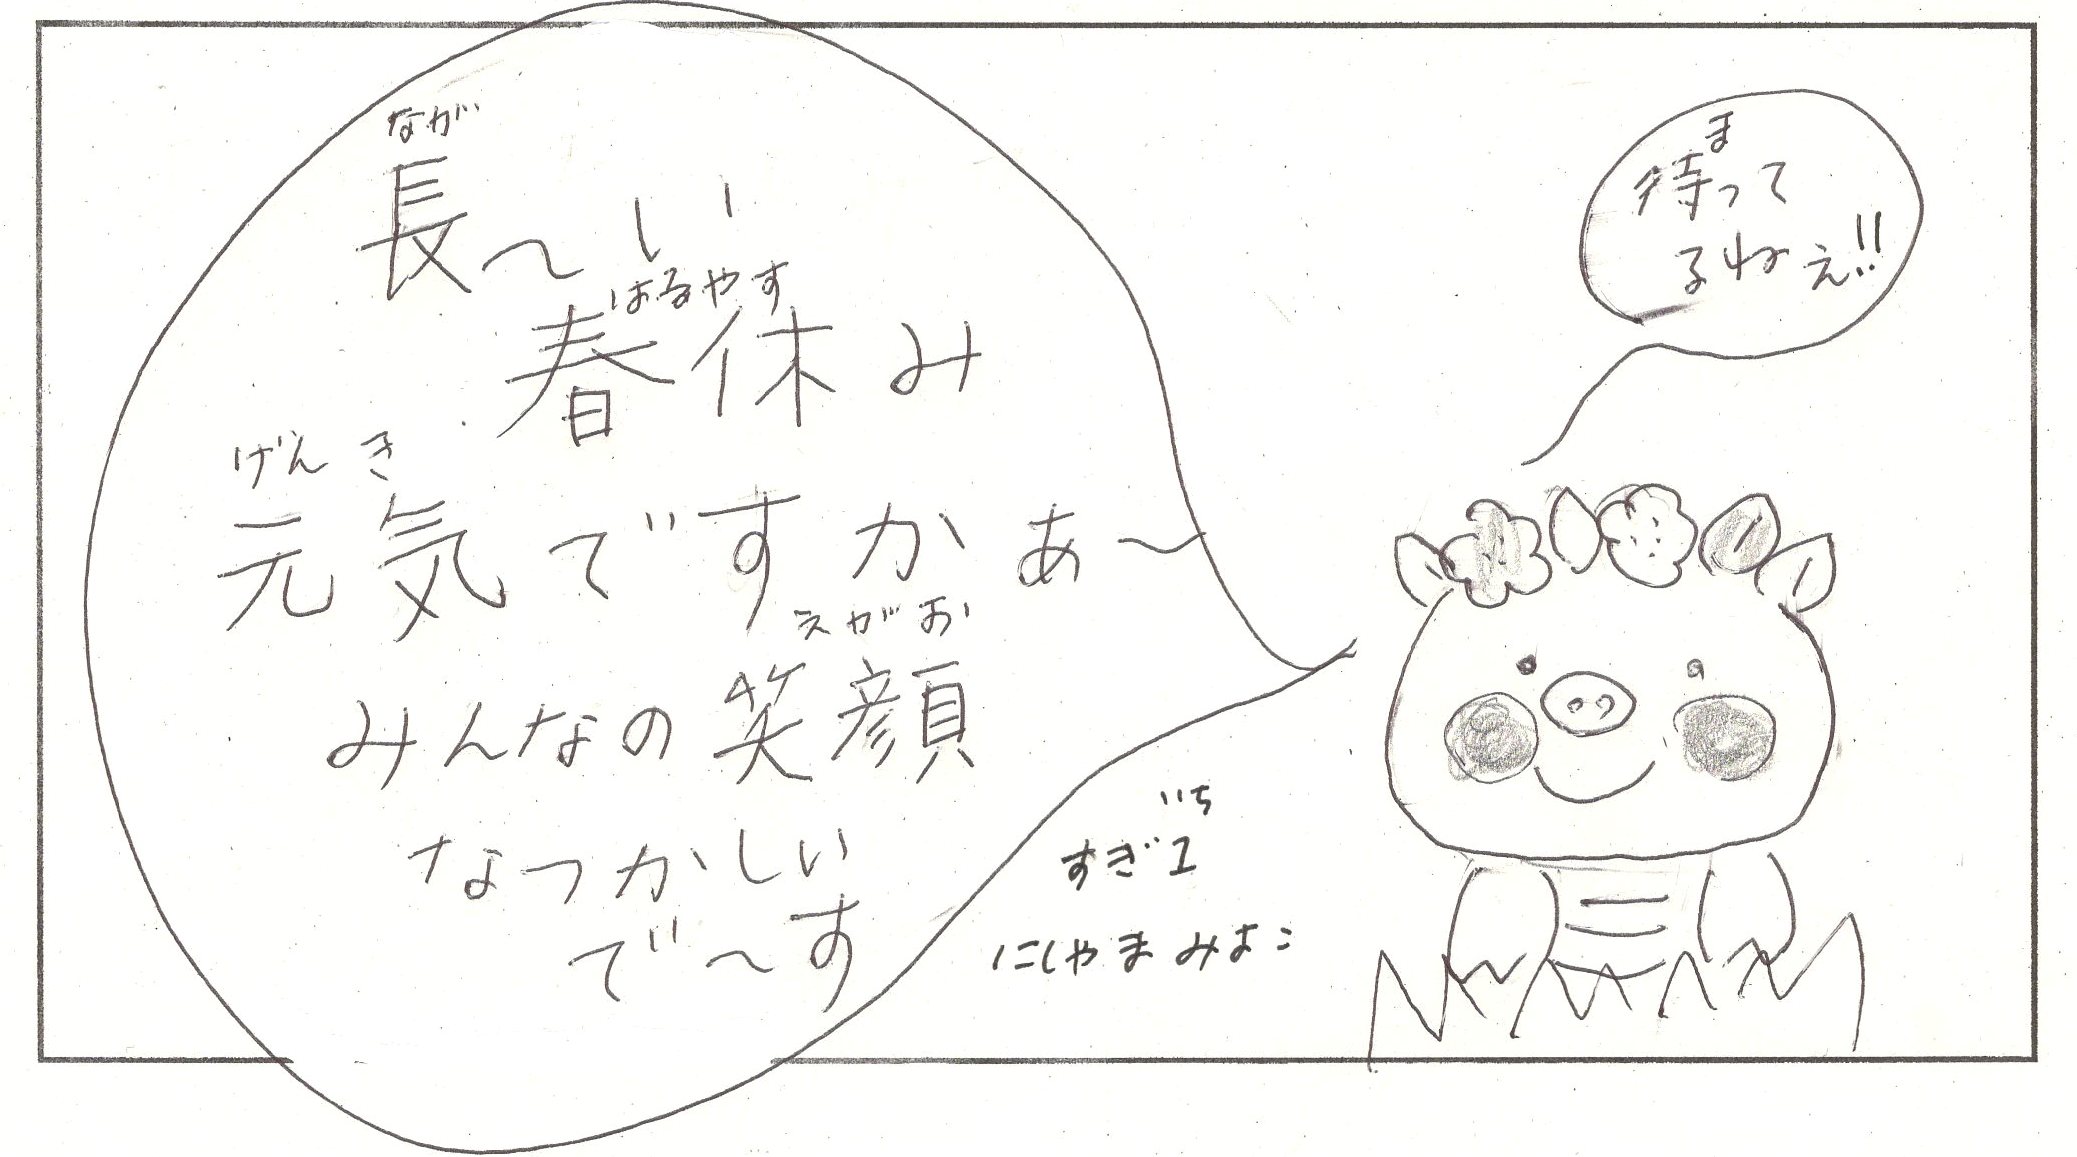 なが
長〜い
はるやす
春休み
げんき
元気ですかぁ〜
えがお
みんなの笑顔
なつかしい
で〜す
ま
待って
るねぇ!!
いち
すぎ1
にしやまみよこ